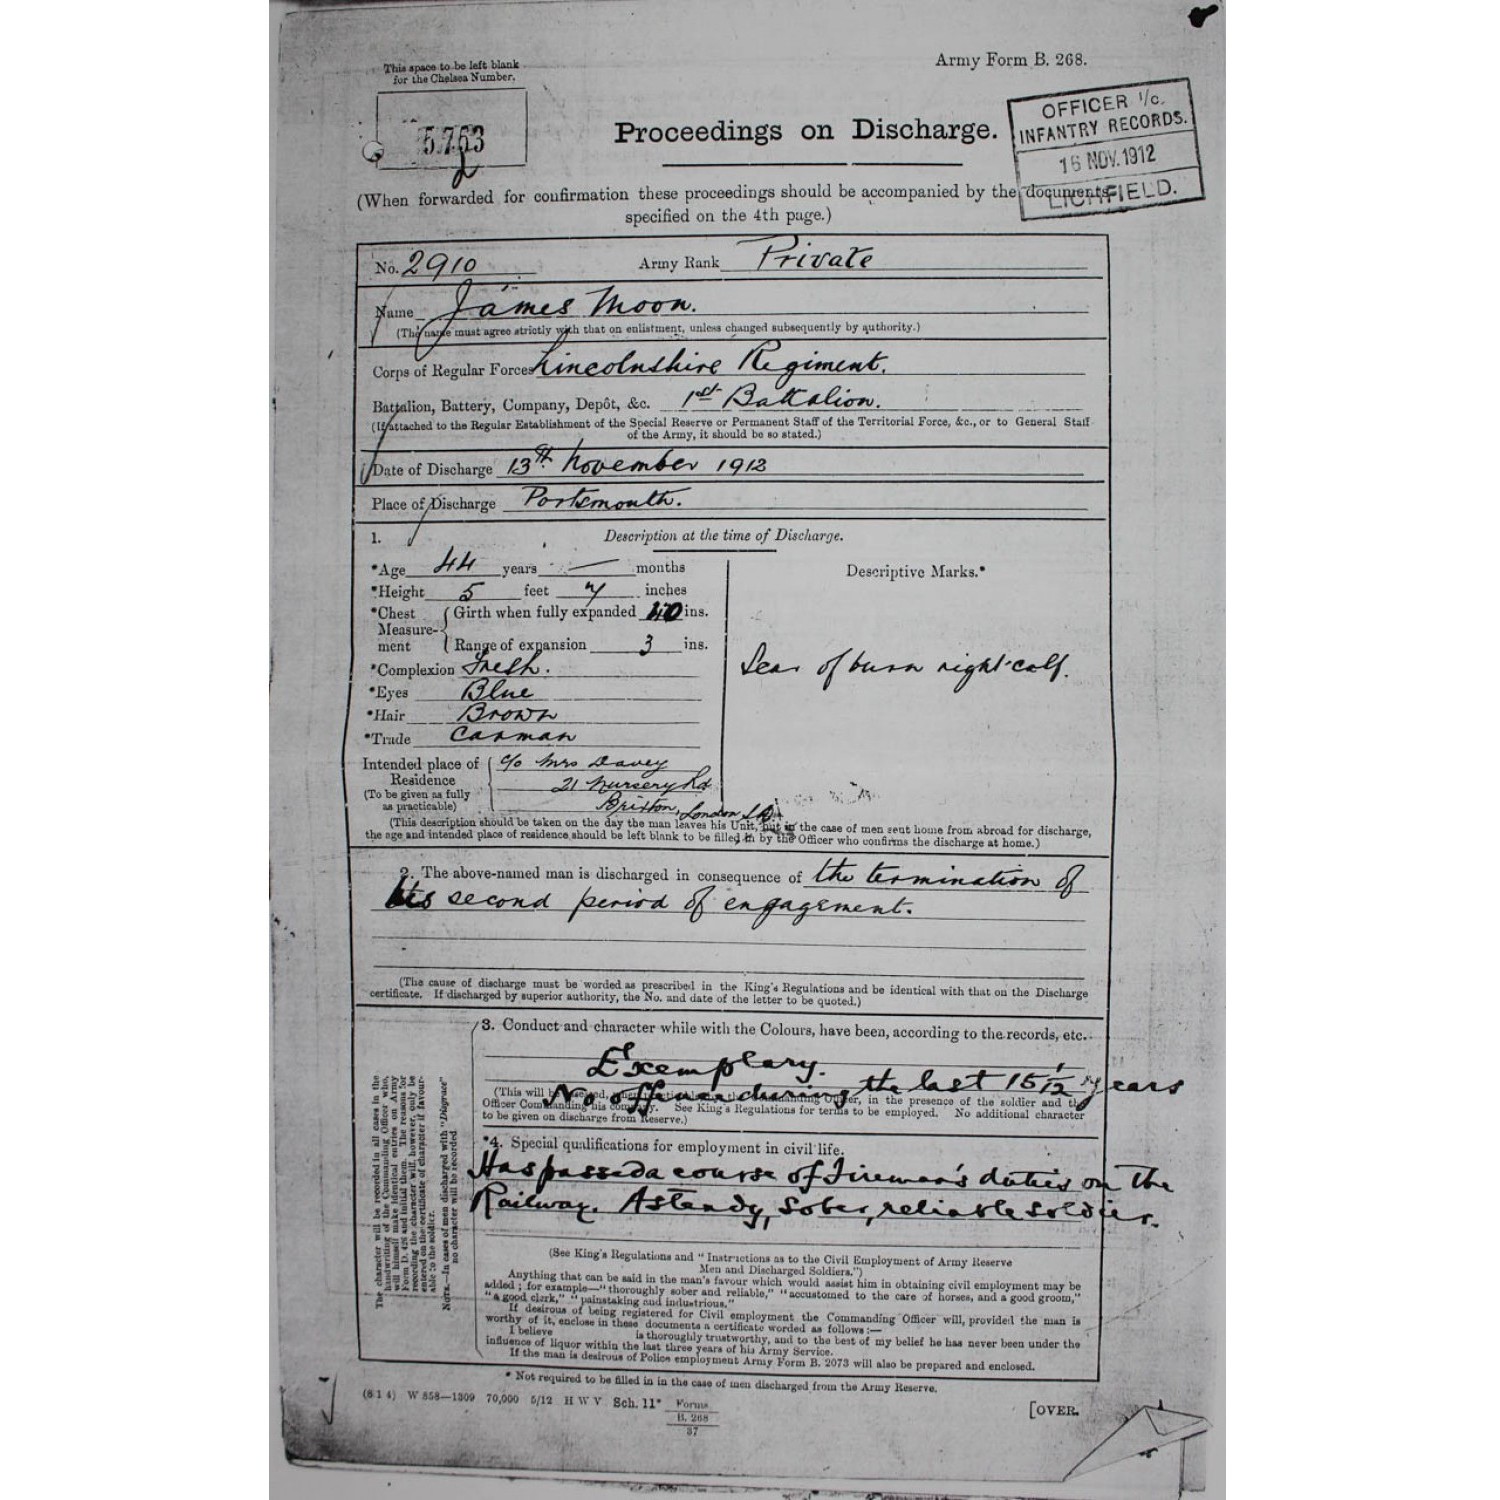 This space to be left blank
for the Chelsea Number.
5763
Army Form B. 268.
OFFICER I/c.
INFANTRY RECORDS.
15 NOV. 1912
LICHFIELD.
Proceedings on Discharge.
(When forwarded for confirmation these proceedings should be accompanied by the documents
specified on the 4th page.)
No. 2910 Army Rank Private
Name James Moon.
(The name must agree strictly with that on enlistment, unless changed subsequently by authority.)
Corps of Regular Forces Lincolnshire Regiment.
Battalion, Battery, Company, Depôt, &c. 1st Battalion.
(If attached to the Regular Establishment of the Special Reserve or Permanent Staff of the Territorial Force, &c., or to General Staff
of the Army, it should be so stated.)
Date of Discharge 13th November 1912
Place of Discharge Portsmouth.
1. Description at the time of Discharge.
*Age 44 years — months
*Height 5 feet 7 inches
*Chest Measurement Girth when fully expanded 40 ins.
Range of expansion 3 ins.
*Complexion Fresh.
*Eyes Blue
*Hair Brown
*Trade Carman
Intended place of Residence c/o Mrs Davey
(To be given as fully as practicable) 21 Nursery Rd
Brixton, London
Descriptive Marks.*
Scar of burn right calf.
(This description should be taken on the day the man leaves his Unit, but in the case of men sent home from abroad for discharge,
the age and intended place of residence should be left blank to be filled in by the Officer who confirms the discharge at home.)
2. The above-named man is discharged in consequence of the termination of
his second period of engagement.
(The cause of discharge must be worded as prescribed in the King's Regulations and be identical with that on the Discharge
certificate. If discharged by superior authority, the No. and date of the letter to be quoted.)
The character will be recorded in all cases in the
handwriting of the Commanding Officer who,
will himself make identical entries on Army
Form D. 426 and initial them. The reasons for
recording the character will, however, only be
entered on the certificate of character if favour-
able to the soldier.
NOTE.—In cases of men discharged with "Disgrace"
no character will be recorded
3. Conduct and character while with the Colours, have been, according to the records, etc.
Exemplary.
No offence during the last 15 1/12 years
(This will be in the presence of the soldier and the
Officer Commanding his company. See King's Regulations for terms to be employed. No additional character
to be given on discharge from Reserve.)
*4. Special qualifications for employment in civil life.
Has passed a course of Fireman's duties on the
Railway. A steady, sober, reliable soldier.
(See King's Regulations and "Instructions as to the Civil Employment of Army Reserve
Men and Discharged Soldiers.")
Anything that can be said in the man's favour which would assist him in obtaining civil employment may be
added; for example—"thoroughly sober and reliable," "accustomed to the care of horses, and a good groom,"
"a good clerk," "painstaking and industrious."
If desirous of being registered for Civil employment the Commanding Officer will, provided the man is
worthy of it, enclose in these documents a certificate worded as follows:—
I believe is thoroughly trustworthy, and to the best of my belief he has never been under the
influence of liquor within the last three years of his Army Service.
If the man is desirous of Police employment Army Form B. 2073 will also be prepared and enclosed.
* Not required to be filled in in the case of men discharged from the Army Reserve.
(8 1 4) W 858—1309 70,000 5/12 H W V Sch. 11* Forms
B. 268
37
[OVER.